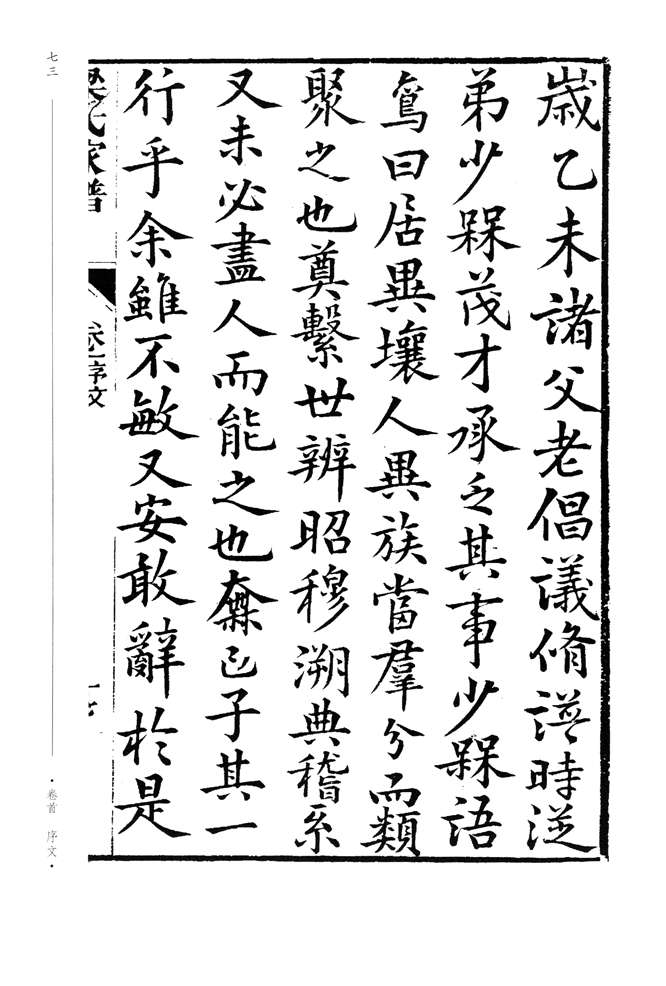 歲乙未諸父老倡議脩譜時從
弟少槑茂才承乏其事少槑語
曰居異壤人異族當羣分而類
聚之也奠繫世辨昭穆溯典稽系
又未必盡人而能之也己子其一
行乎余雖不敏又安敢辭於是
氏家譜
序文
七三
·卷首 序文·